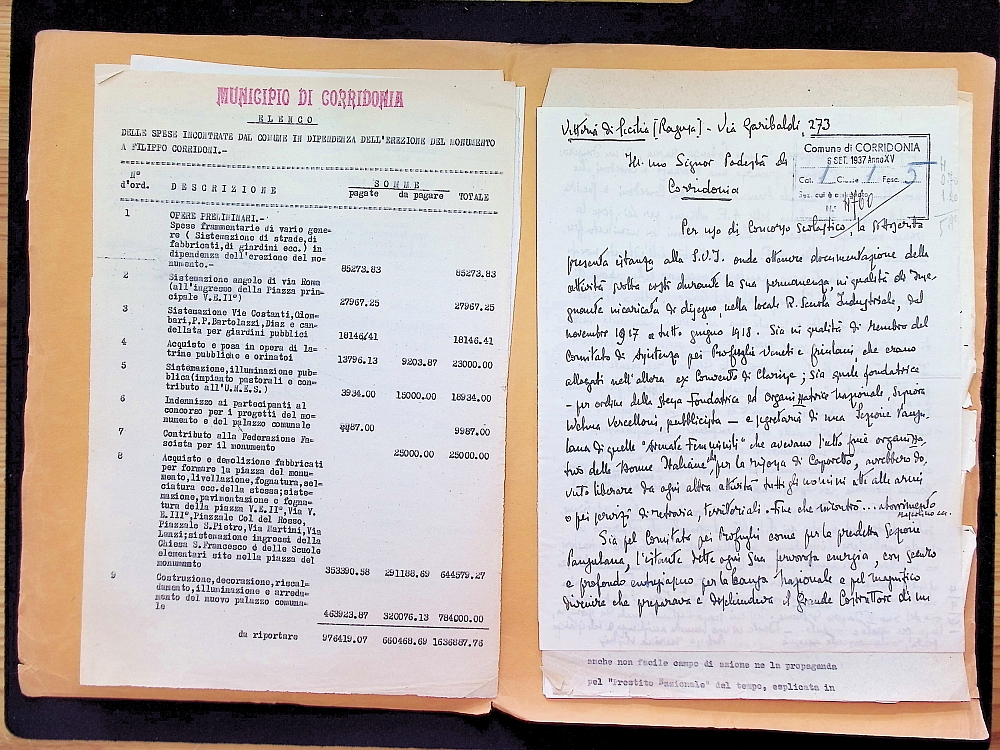 MUNICIPIO DI CORRIDONIA
ELENCO
DELLE SPESE INCONTRATE DAL COMUNE IN DIPENDENZA DELL'EREZIONE DEL MONUMENTO
A FILIPPO CORRIDONI.-
N° d'ord. DESCRIZIONE SOMME
pagate da pagare TOTALE
1 OPERE PRELIMINARI.-
Spese frammentarie di vario gene=
re ( Sistemazione di strade,di
fabbricati,di giardini ecc.) in
dipendenza dell'erezione del mo=
numento.- 85273.83 85273.83
2 Sistemazione angolo di via Roma
(all'ingresso della Piazza prin=
cipale V.E.II°) 27967.25 27967.25
3 Sistemazione Vie Costanti,Colom=
bari,P.P.Bartolazzi,Diaz e can=
dellata per giardini pubblici 18146/41 18146.41
4 Acquisto e posa in opera di la=
trine pubbliche e orinatoi 13796.13 9203.87 23000.00
5 Sistemazione,illuminazione pub=
blica(impianto pastorali e con=
tributo all'U.N.E.S.) 3934.00 15000.00 18934.00
6 Indennizzo ai partecipanti al
concorso per i progetti del mo=
numento e del palazzo comunale 9987.00 9987.00
7 Contributo alla Federazione Fa=
scista per il monumento 25000.00 25000.00
8 Acquisto e demolizione fabbricati
per formare la piazza del monu=
mento,livellazione,fognatura,sel=
ciatura ecc.della stessa;siste=
mazione,pavimentazione e fogna=
tura della piazza V.E.II°,Via V.
E.III°,Piazzale Col del Rosso,
Piazzale S.Pietro,Via Martini,Via
Lanzi;sistemazione ingressi della
Chiesa S.Francesco e delle Scuole
elementari site nella piazza del
monumento 353390.58 291188.69 644579.27
9 Costruzione,decorazione,riscal=
damento,illuminazione e arreda=
mento del nuovo palazzo comuna=
le 463923.87 320076.13 784000.00
da riportare 976419.07 660468.69 1636887.76
Vittoria di Sicilia (Ragusa) - Via Garibaldi 273
Ill.mo Signor Podestà di
Corridonia
Comune di CORRIDONIA
6 SET. 1937 Anno XV
Cat. 1 Classe 1 Fasc. 5
N. 4760
Per uso di Concorso Scolastico, la sottoscritta
presenta istanza alla S.V.I. onde ottenere documentazione della
attività svolta costì durante la sua permanenza, in qualità di Inse=
gnante incaricata di disegno, nella locale R. Scuola Industriale, dal
novembre 1917 a tutto giugno 1918. Sia in qualità di Membro del
Comitato di Assistenza pei Profughi Veneti e friulani, che erano
alloggiati nell'allora ex Convento di Clarisse; sia quale fondatrice
- per ordine della stessa Fondatrice ed Organizzatrice nazionale, Signora
pubblicista - e segretaria di una Sezione Pausu=
lana di quelle "Armate Femminili" che avevano l'alto fine
delle Donne Italiane, per la riscossa di Caporetto, avrebbero do=
vuto liberare da ogni altra attività tutti gli uomini atti alle armi
o pei servizi di retrovia, territoriali. Fine che incontrò ...
Sia pel Comitato pei Profughi come per la predetta Sezione
Pausulana, l'istante dette ogni sua fervorosa energia, con
e profondo entusiasmo per la Causa Nazionale e pel magnifico
divenire che preparava e dischiudeva il Grande Costruttore di un
anche non facile campo di azione ne la propaganda
pel "Prestito Nazionale" del tempo, esplicata in